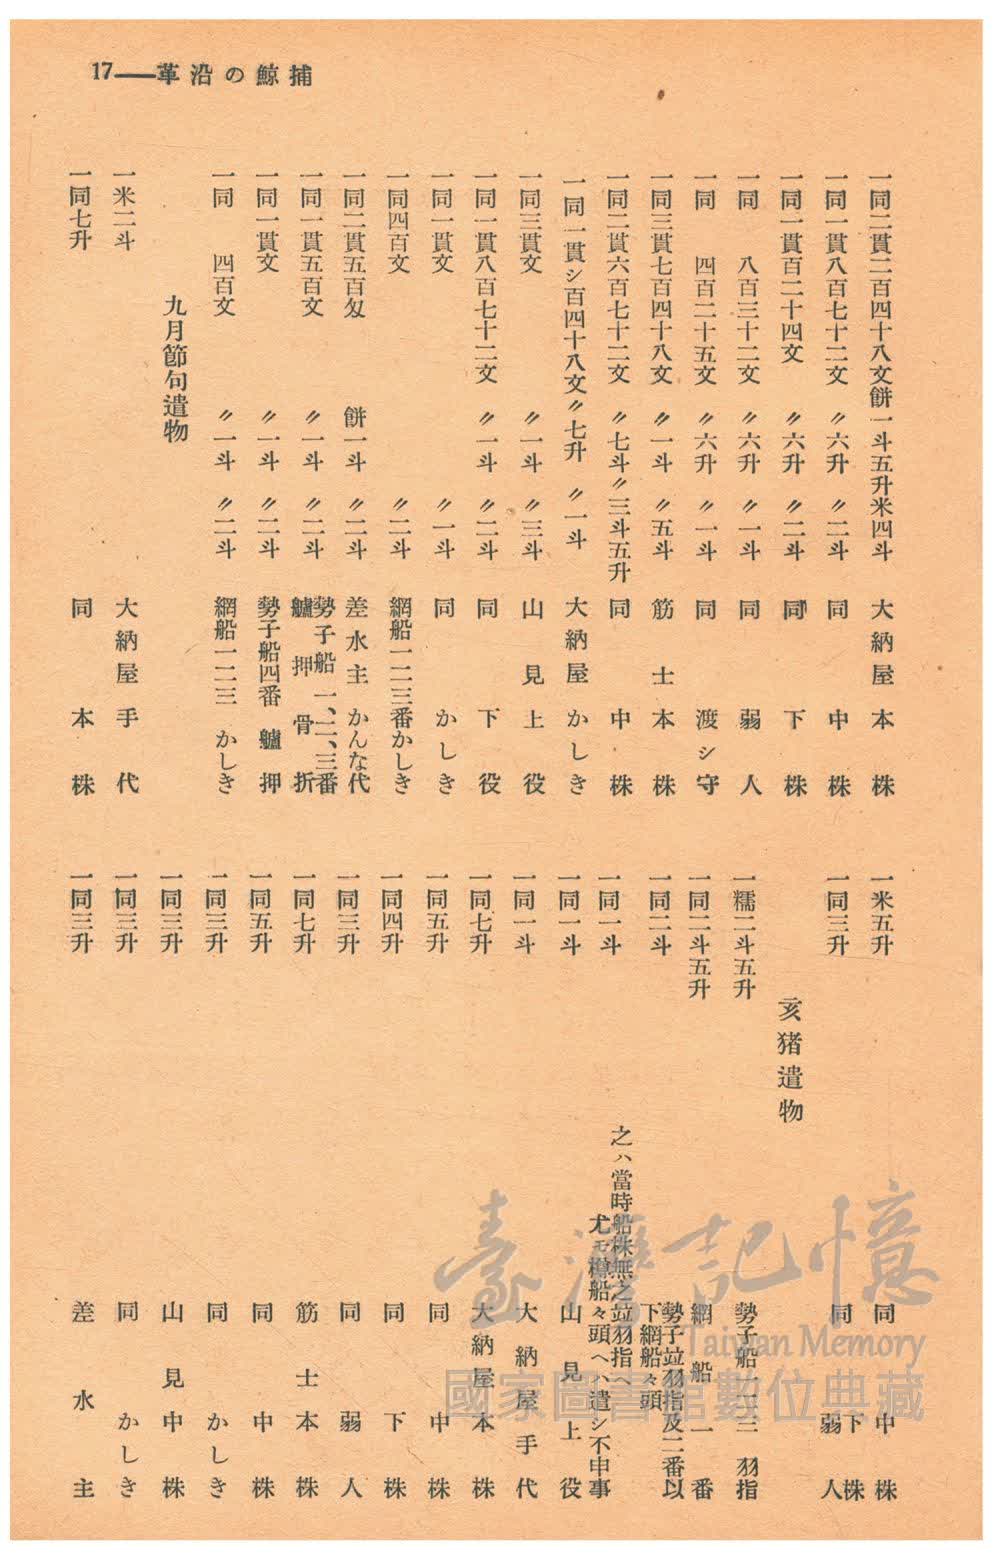 17——革沿の鯨捕
一同二貫二百四十八文餅一斗五升米四斗 大納屋本株
一同一貫八百七十二文 〃六升 〃二斗 同 中株
一同一貫百二十四文 〃六升 〃二斗 同 下株
一同 八百三十二文 〃六升 〃一斗 同 弱人
一同 四百二十五文 〃六升 〃一斗 同 渡シ守
一同三貫七百四十八文 〃一斗 〃五斗 筋士本株
一同二貫六百七十二文 〃七斗〃三斗五升 同 中株
一同一貫シ百四十八文〃七升 〃一斗 大納屋かしき
一同三貫文 〃一斗 〃三斗 山見上役
一同一貫八百七十二文 〃一斗 〃二斗 同 下役
一同一貫文 〃一斗 同 かしき
一同四百文 〃二斗 網船一二三番かしき
一同二貫五百匁 餅一斗 〃二斗 差水主 かんな代
一同一貫五百文 〃一斗 〃二斗 勢子船 一、二、三番
艫押骨折
一同一貫文 〃一斗 〃二斗 勢子船四番 艫押
一同 四百文 〃一斗 〃二斗 網船一二三 かしき
九月節句遣物
一米二斗 大納屋手代
一同七升 同 本株
一米五升 同 中株
一同三升 同 下株
弱人
亥猪遣物
一糯二斗五升 勢子船一二三 羽指
一同二斗五升 網船一番
一同二斗 勢子竝羽指及二番以
下網船々頭
一同一斗 之ハ當時船株無之竝羽指へ
尤モ樽船々頭へハ遣シ不申事
一同一斗 山見上役
一同一斗 大納屋手代
一同七升 大納屋本株
一同五升 同 中株
一同四升 同 下株
一同三升 同 弱人
一同七升 筋士本株
一同五升 同 中株
一同三升 同 かしき
一同三升 山見中株
一同三升 同 かしき
一同三升 差水主
臺灣記憶
Taiwan Memory
國家圖書館數位典藏